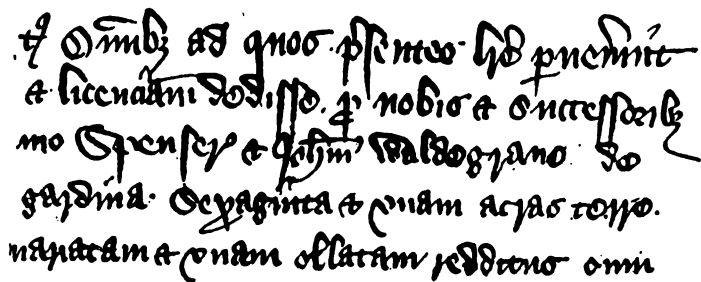 ⁊c̄ Om̄ibȝ ad quos p̄sentes lr̄e ꝑuen̄int
et licenciam dedisse ꝓ nobis et Successoribȝ
mo Spenser et Joh̄m Waldegraue de
gardina Sexaginta et vnam acras terre
nariatam et vnam ollatam redditus cum